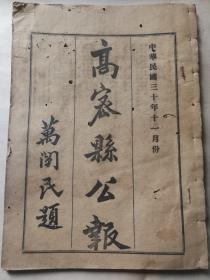 中華民國三十年十一月份
高密縣公報
萬閔民題